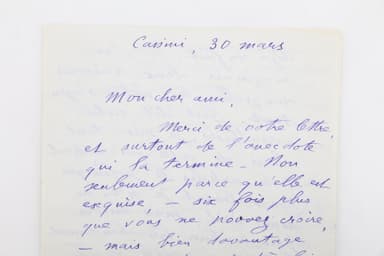 Cassini, 30 mars
Mon cher ami,
Merci de votre lettre,
et surtout de l'anecdote
qui la termine – Non
seulement parce qu'elle est
exquise, – six fois plus
que vous ne pouvez croire,
– mais bien davantage